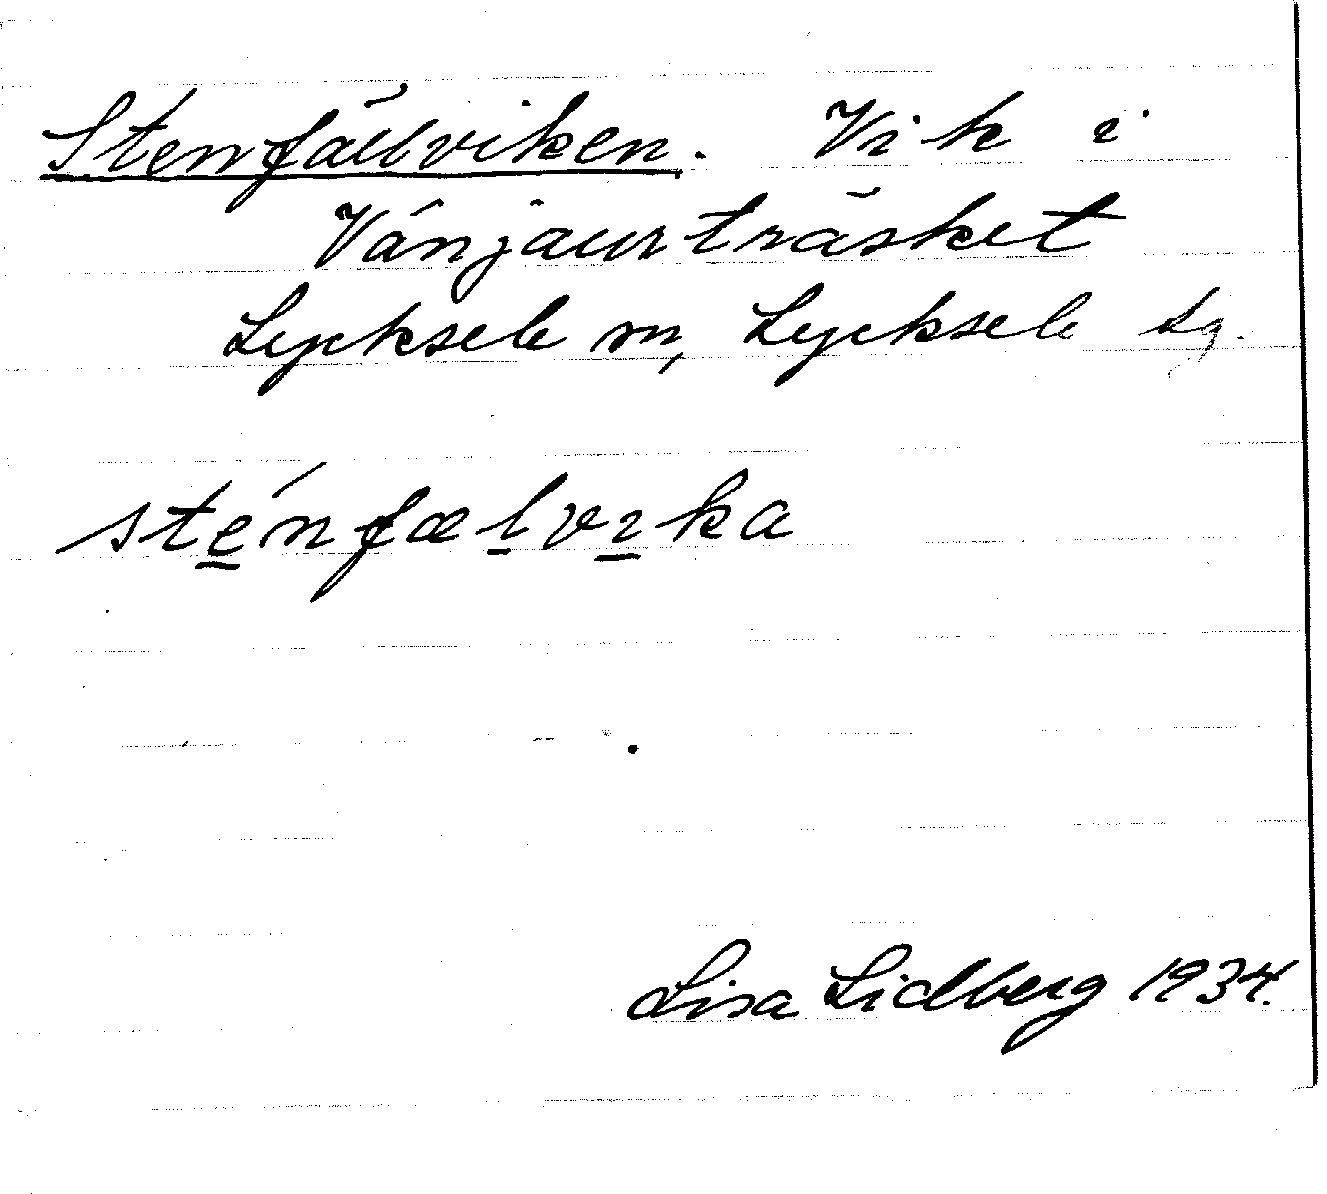 Stenfällviken. Vik i
Vänjaurträsket
Lycksele sn, Lycksele lg.
sténfælvıka
Lisa Lidberg 1934.